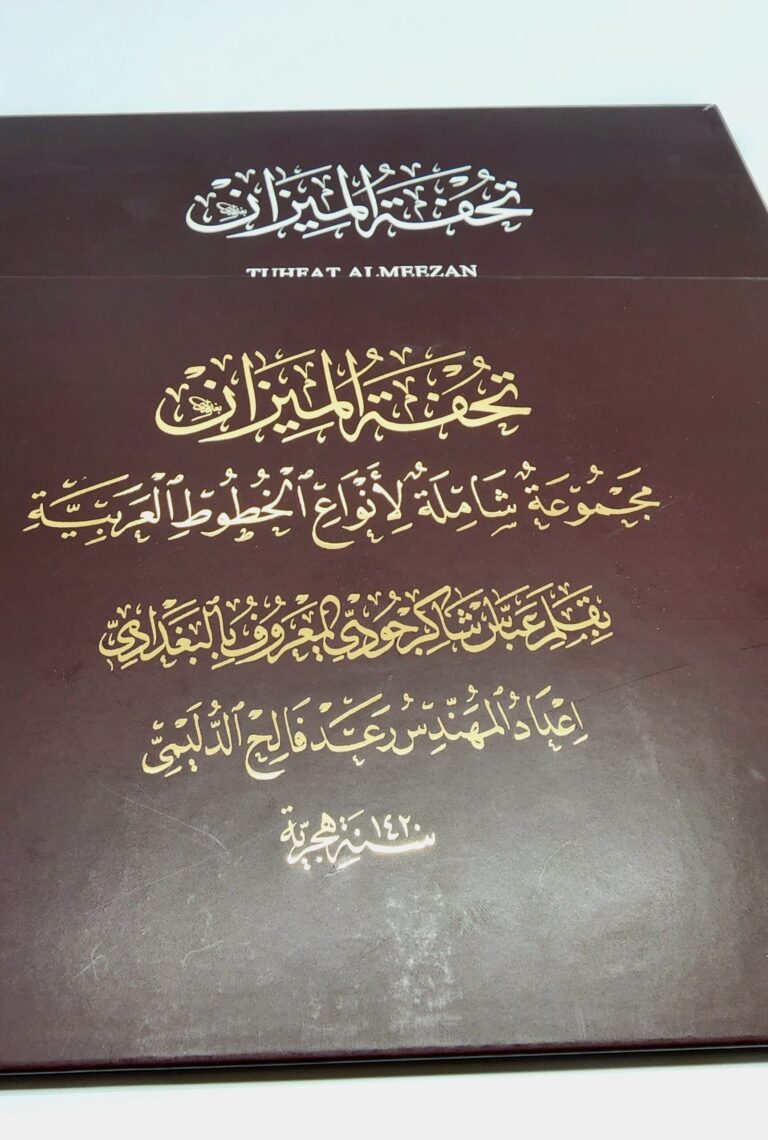 تُحْفَةُ الْمِيزَانْ
TUHFAT ALMEEZAN
تُحْفَةُ الْمِيزَانْ
مَجْمُوعَةٌ شَامِلَةٌ لِأَنْوَاعِ الْخُطُوطِ الْعَرَبِيَّةِ
بِقَلَمِ عَبَّاس شَاكِر جُودِي الْمَعْرُوفُ بِالْبَغْدَادِيّ
إِعْدَادُ الْمُهَنْدِسُ رَعَدْ فَالِحْ الدُّلَيْمِيّ
سَنَة ١٤٢٠ هِجْرِيَّة